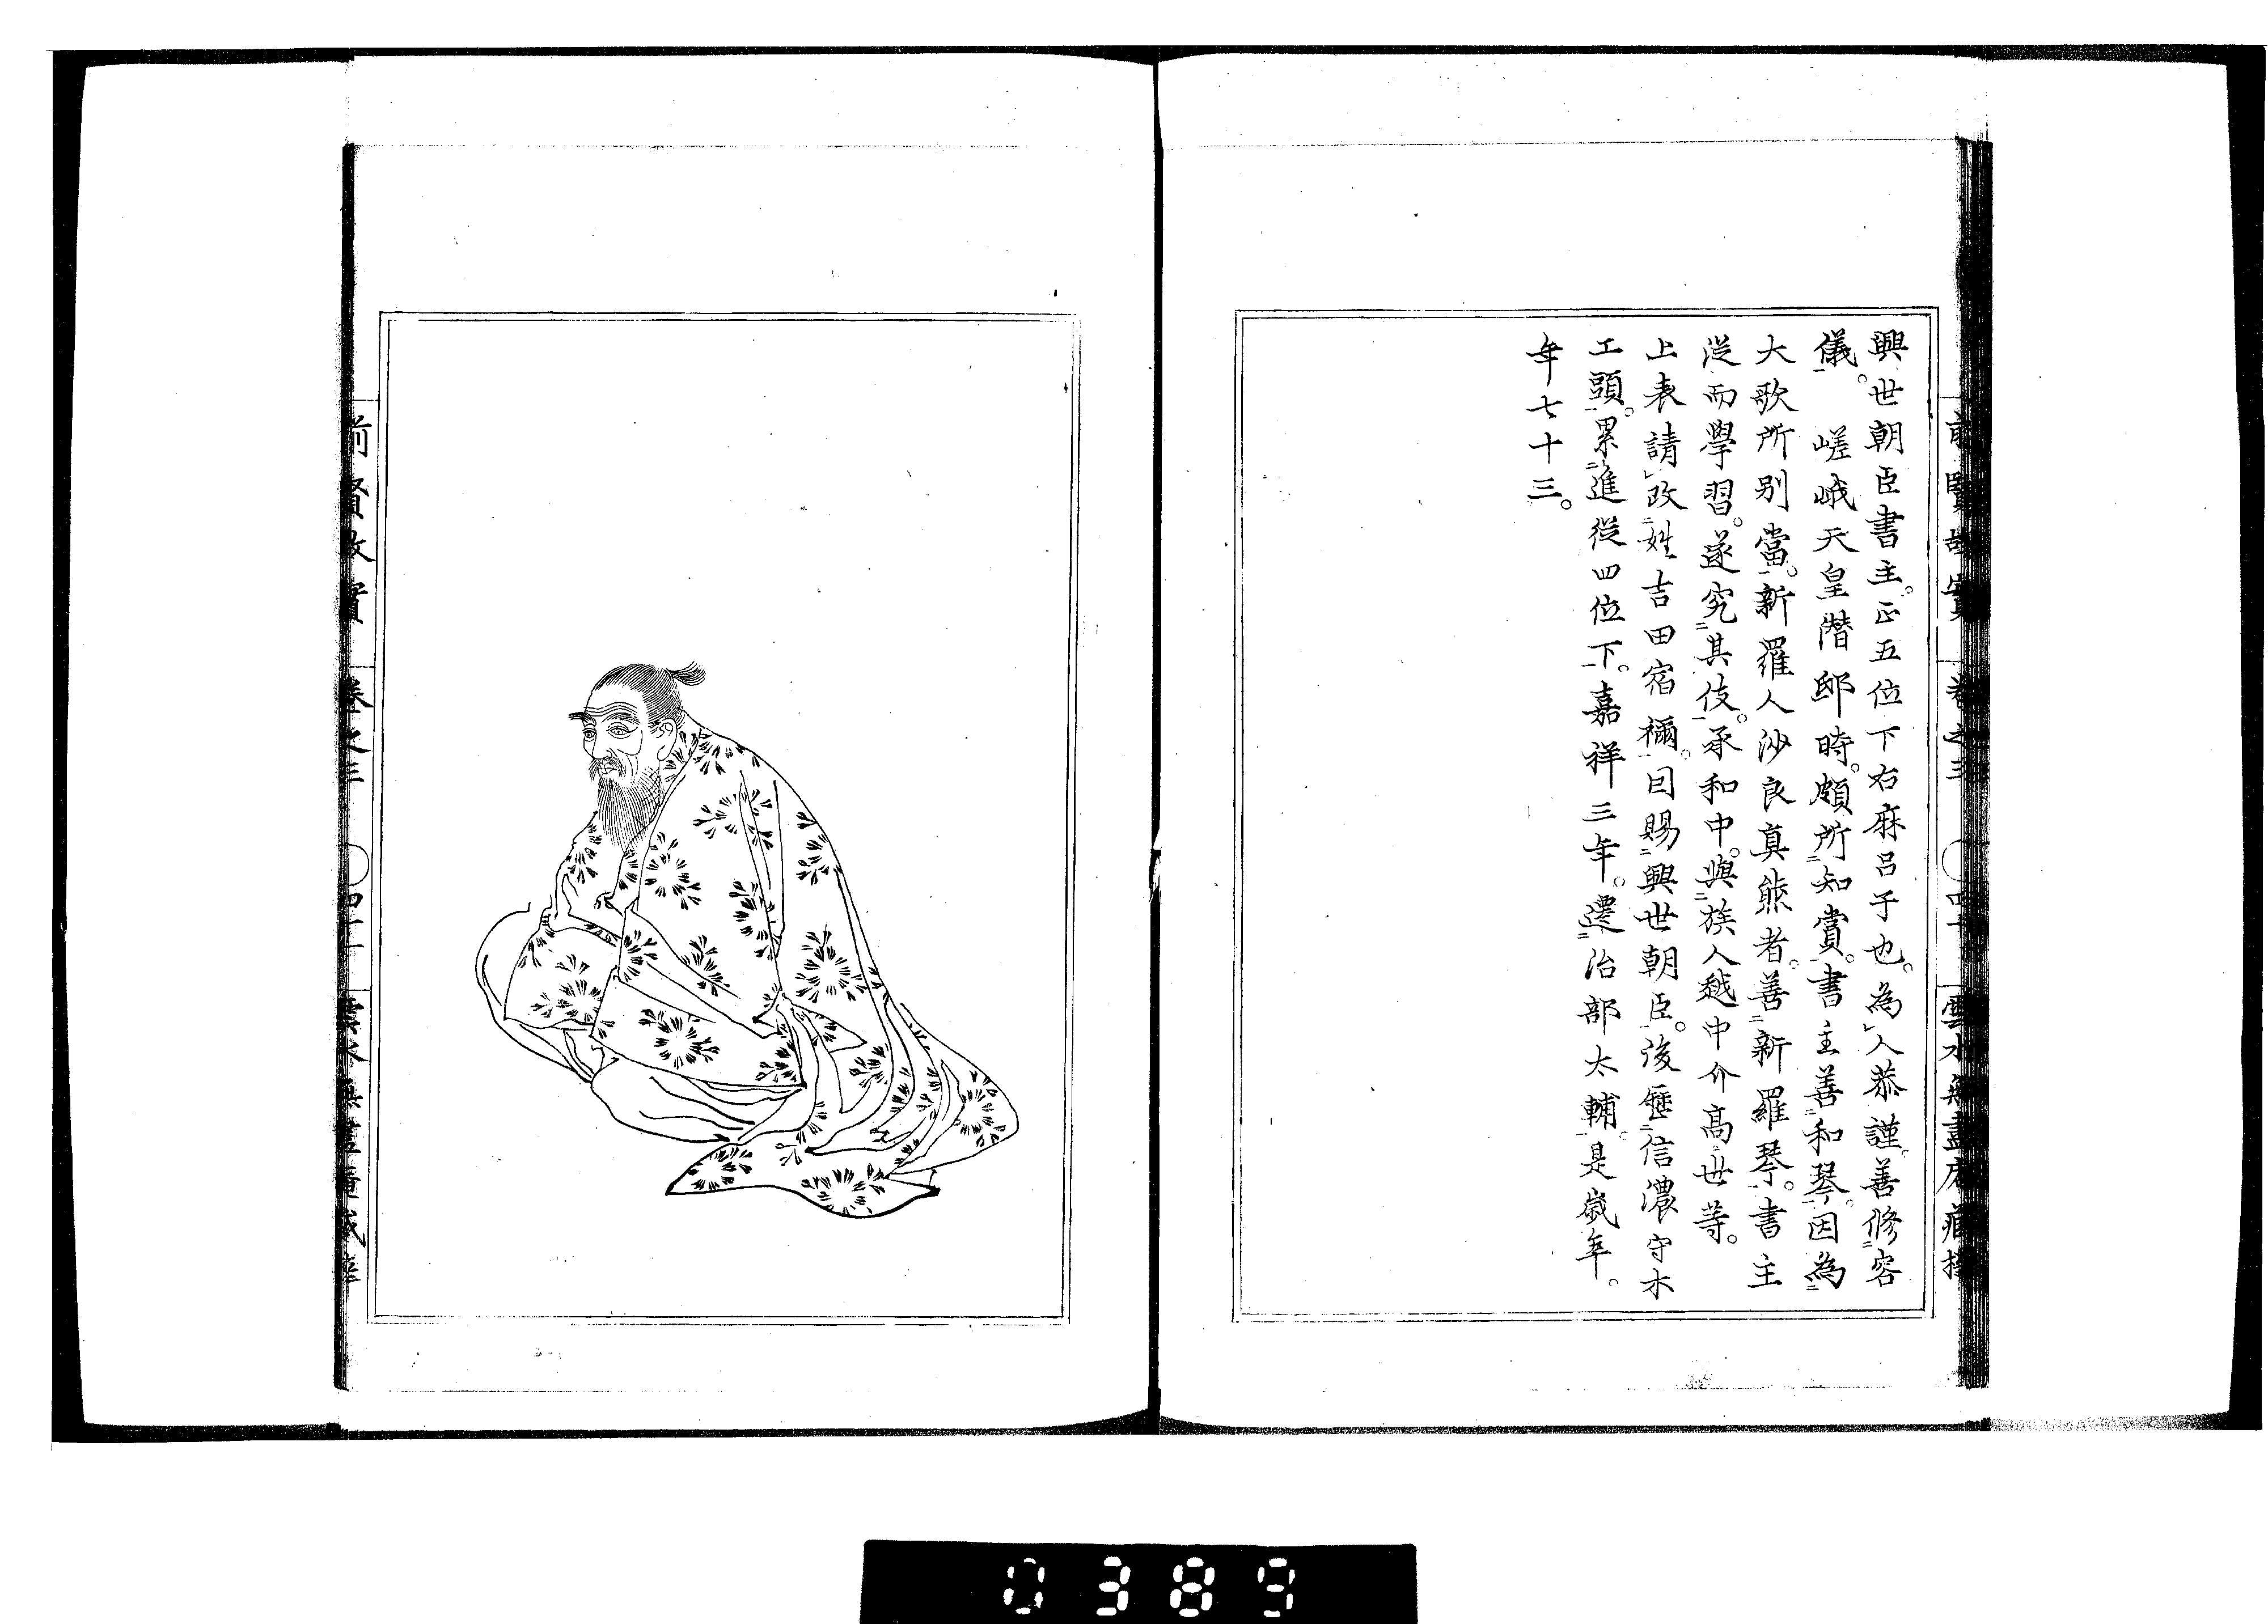 前賢故實 卷之三 〇四十 雲水無盡庵藏梓
興世朝臣書主。正五位下右麻呂子也。為人恭謹。善修容
儀。 嵯峨天皇潛邸時。頗所知賞。書主善和琴。因為
大歌所別當。新羅人沙良真熊者。善新羅琴。書主
從而學習。遂究其伎。承和中。與族人越中介高世等。
上表請改姓吉田宿禰。曰賜興世朝臣。後歷信濃守木
工頭。累進從四位下。嘉祥三年。遷治部太輔。是歲年。
年七十三。
前賢故實 卷之三
0389